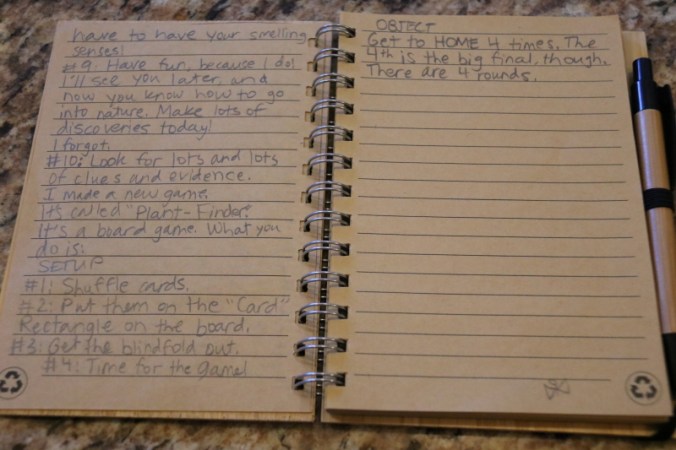 have to have your smelling
senses!
#9 Have fun, because I do!
I'll see you later, and
now you know how to go
into nature. Make lots of
discoveries today!
I forgot.
#10: Look for lots and lots
of clues and evidence.
I made a new game.
It's called "Plant-Finder."
It's a board game. What you
do is:
SETUP
#1: Shuffle cards.
#2: Put them on the "Card"
Rectangle on the board.
#3: Get the blindfold out.
#4: Time for the game!
OBJECT
Get to HOME 4 times. The
4th is the big final, though.
There are 4 rounds.